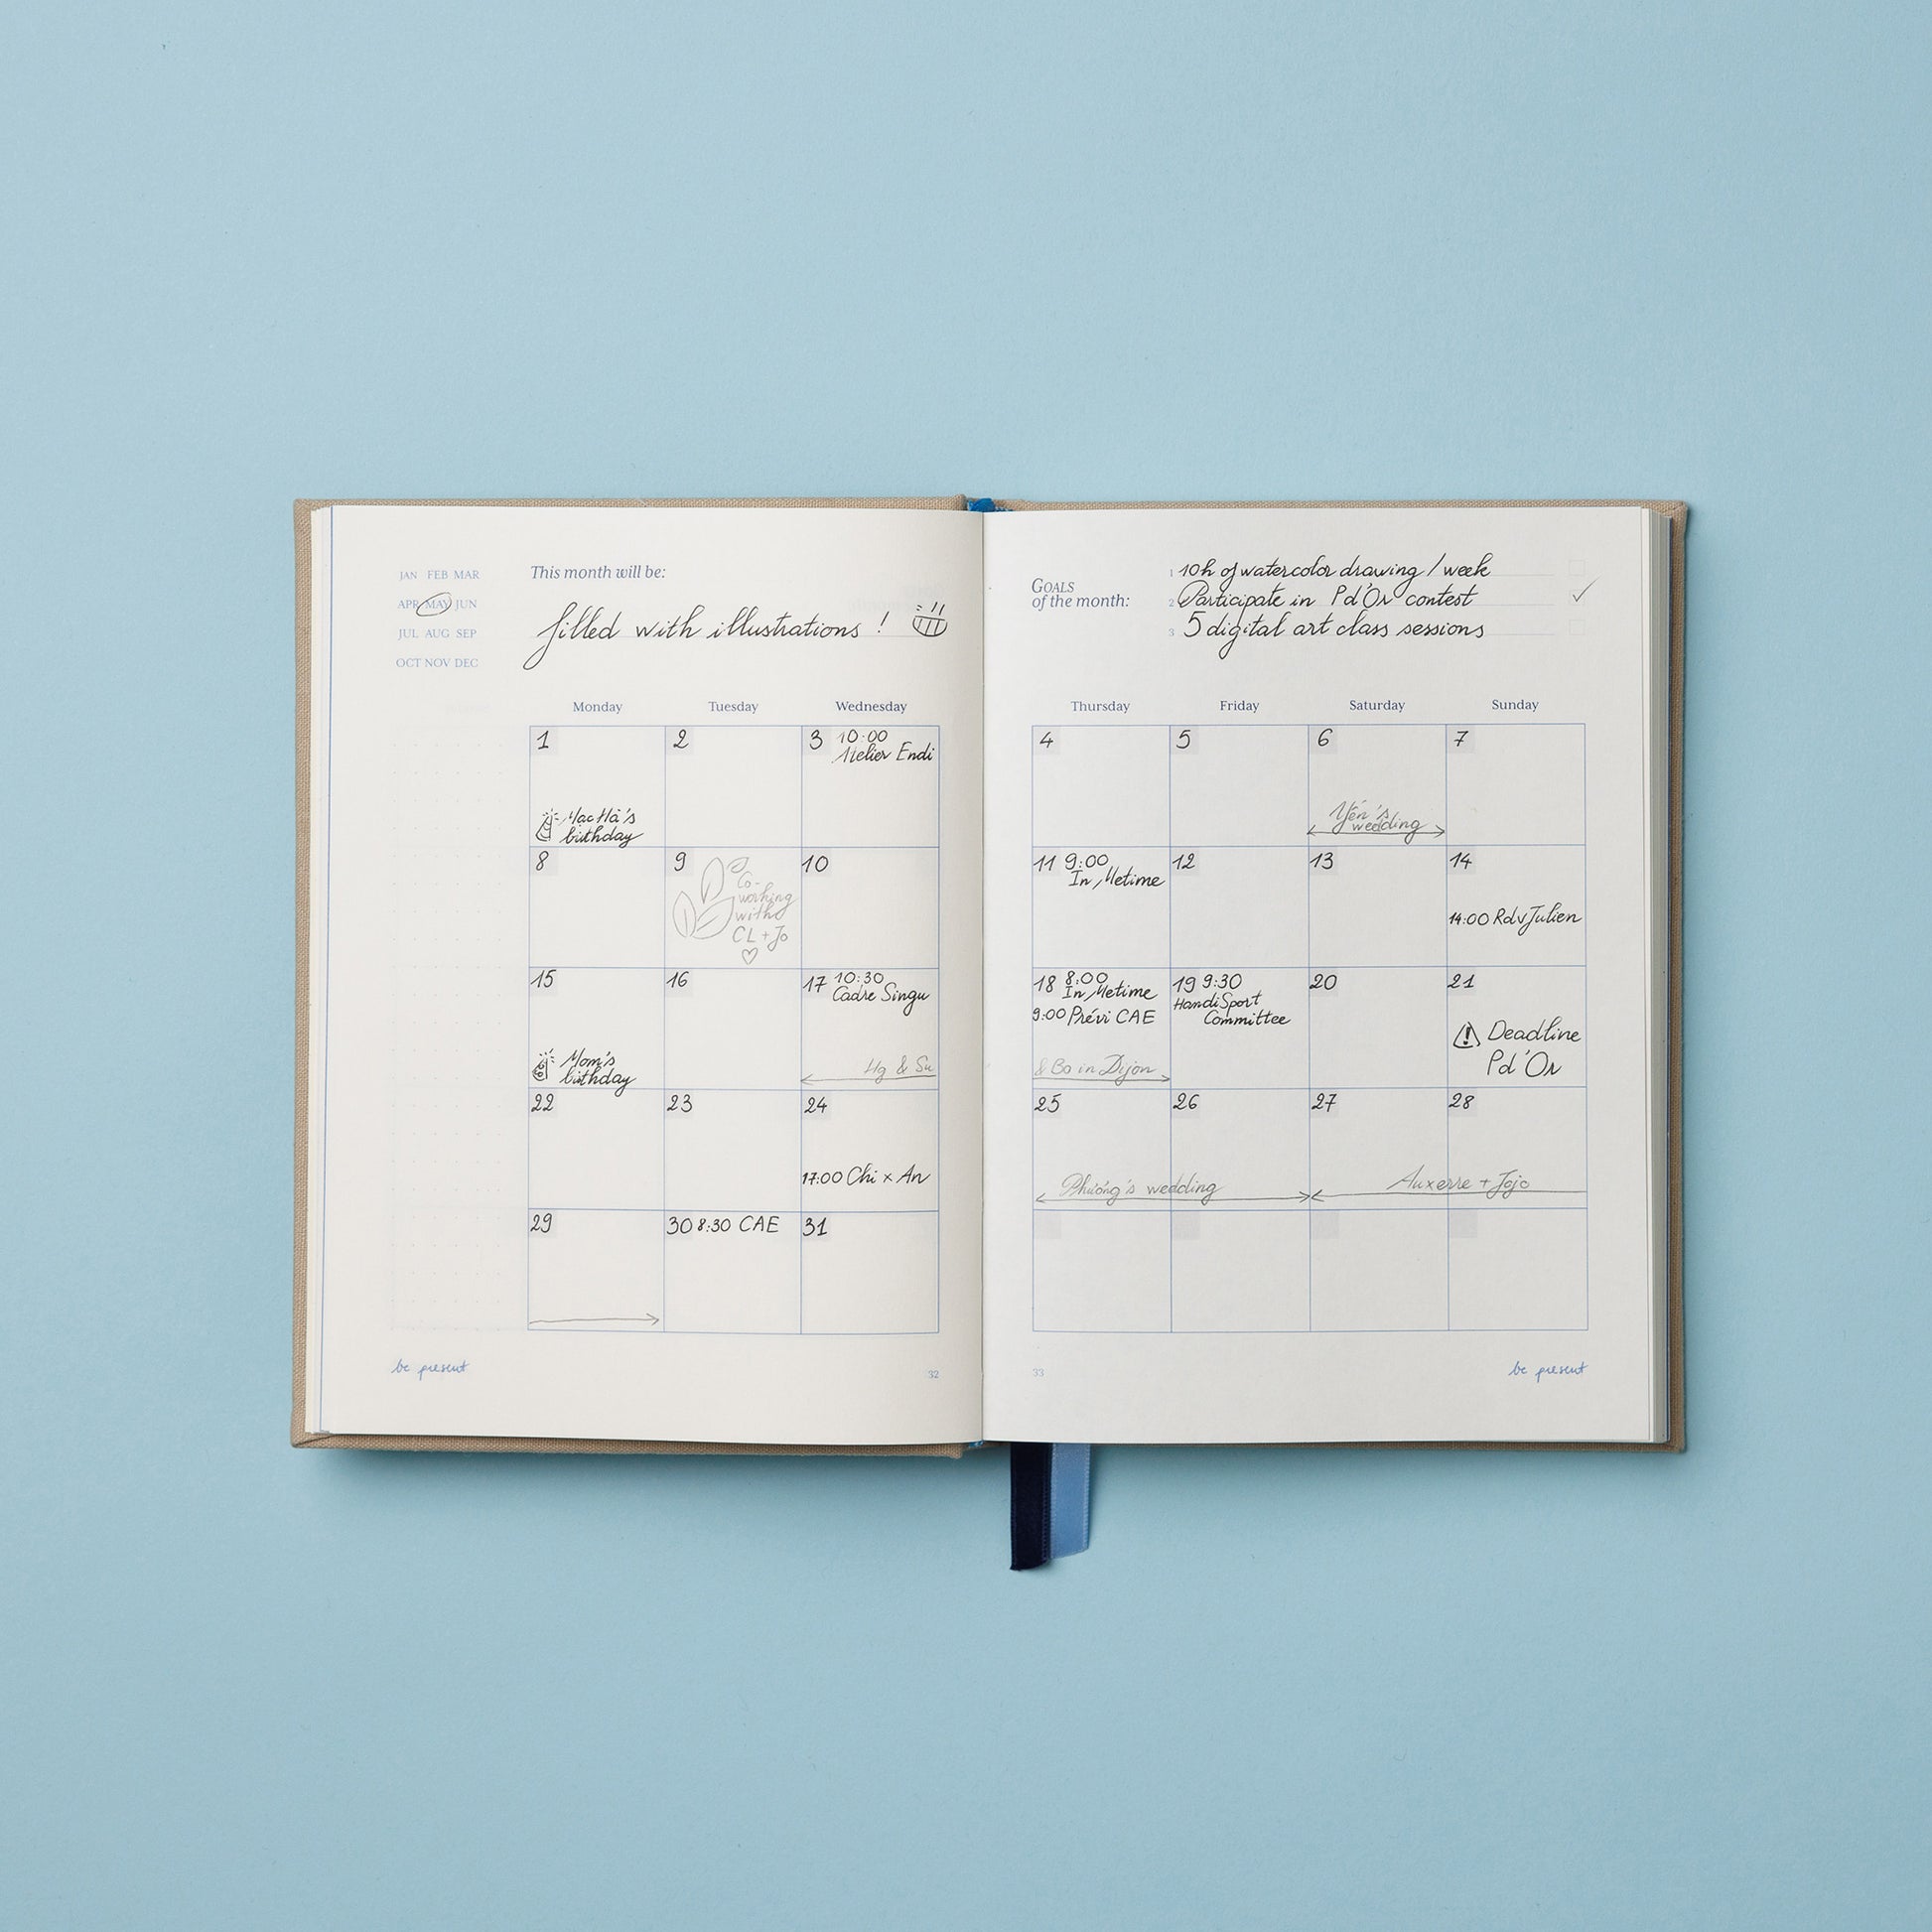 JAN FEB MAR
APR MAY JUN
JUL AUG SEP
OCT NOV DEC
This month will be:
filled with illustrations !
Monday Tuesday Wednesday
1
Mac Hà's
birthday
2
3 10:00
Atelier Endi
8
9
Co-
working
with
CL + Jo
10
15
Mom's
birthday
16
17 10:30
Cadre Singu
Hg & Su
22
23
24
17:00 Chi x An
29
30 8:30 CAE
31
be present
32
GOALS
of the month:
1 10h of watercolor drawing / week
2 Participate in Pd'Or contest
3 5 digital art class sessions
Thursday Friday Saturday Sunday
4
5
6
Yến's
wedding
7
11 9:00
In Metime
12
13
14
14:00 Rdv Julien
18 8:00
In Metime
9:00 Prévi CAE
& Bo in Dijon
19 9:30
HandiSport
Committee
20
21
Deadline
Pd'Or
25
26
27
28
Phương's wedding
Auxerre + Jojo
33
be present